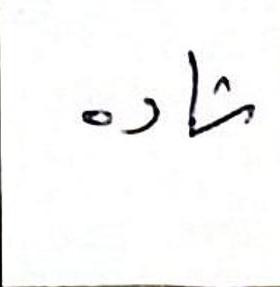 شاده